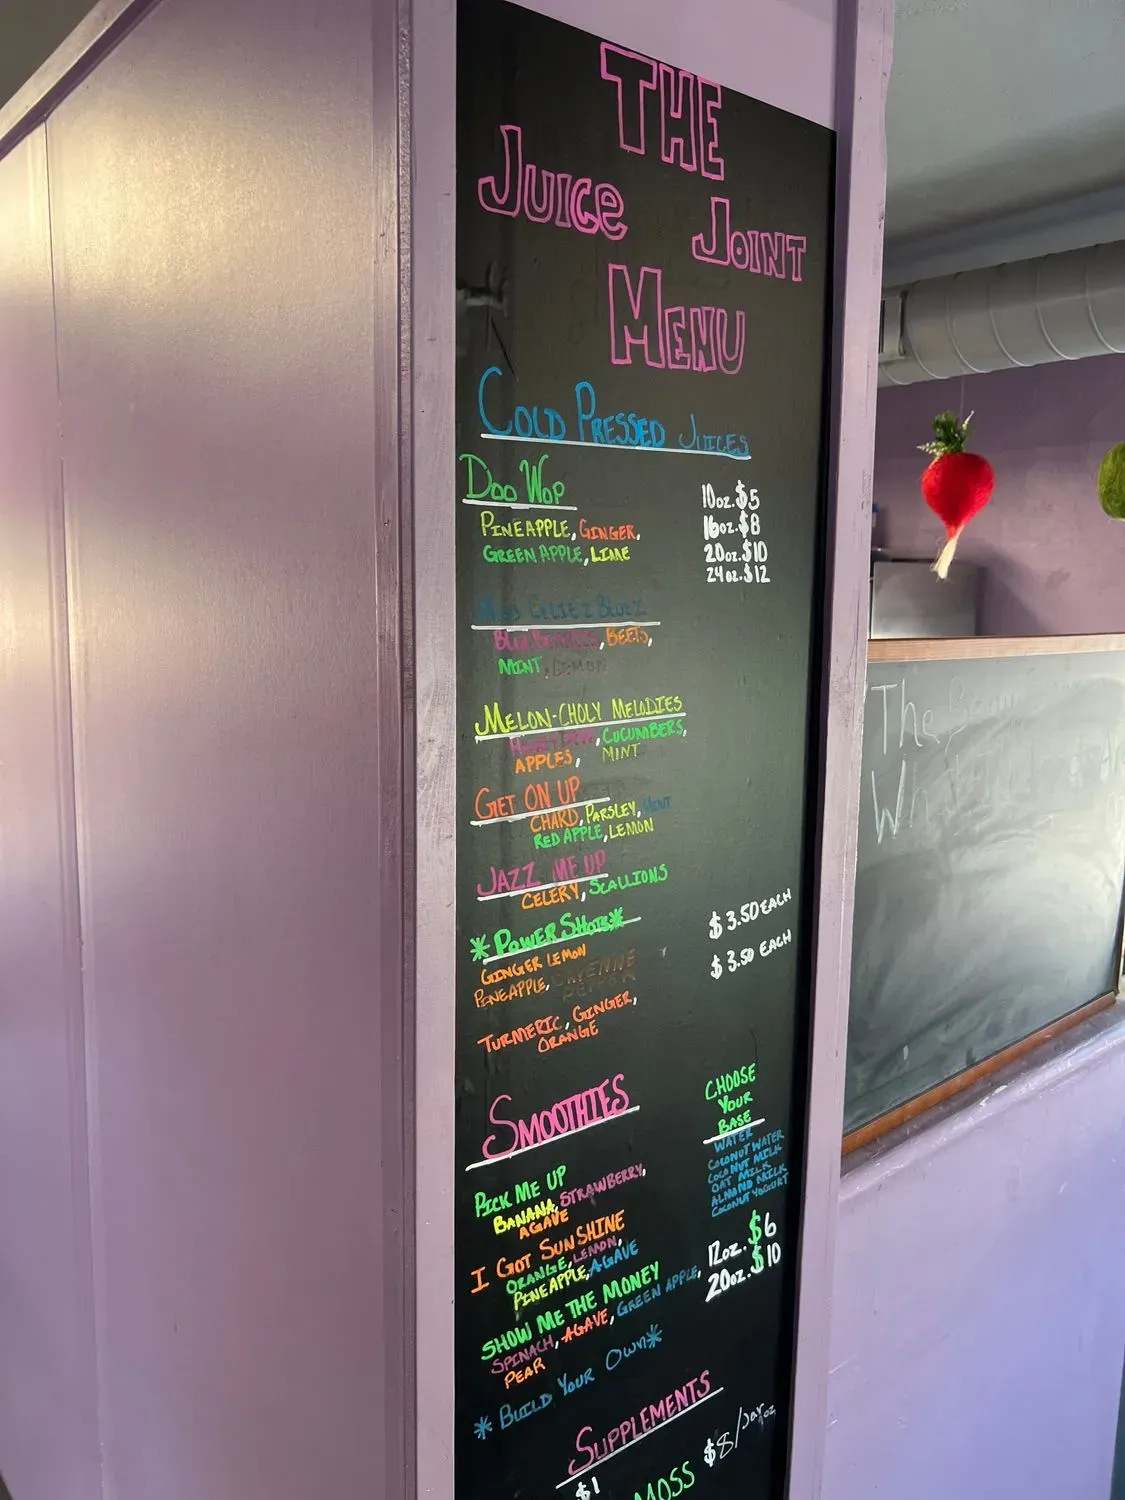 THE
JUICE JOINT
MENU
COLD PRESSED JUICES
DOO WOP
PINEAPPLE, GINGER,
GREEN APPLE, LIME
10oz. $5
16oz. $8
20oz. $10
24oz. $12
BLUEBERRIES, BEETS,
MINT, LEMON
MELON-CHOLY MELODIES
, CUCUMBERS,
APPLES, MINT
GET ON UP
CHARD, PARSLEY, MINT
RED APPLE, LEMON
JAZZ ME UP
CELERY, SCALLIONS
*POWER SHOTS*
$3.50 EACH
GINGER LEMON
PINEAPPLE, CAYENNE
PEPPER
$3.50 EACH
TURMERIC, GINGER,
ORANGE
SMOOTHIES
CHOOSE
YOUR
BASE
WATER
COCONUT WATER
COCONUT MILK
OAT MILK
ALMOND MILK
COCONUT YOGURT
PICK ME UP
BANANA, STRAWBERRY,
AGAVE
I GOT SUNSHINE
ORANGE, LEMON,
PINEAPPLE, AGAVE
12oz. $6
20oz. $10
SHOW ME THE MONEY
SPINACH, AGAVE, GREEN APPLE,
PEAR
*BUILD YOUR OWN*
SUPPLEMENTS
$1
MOSS $8/
The